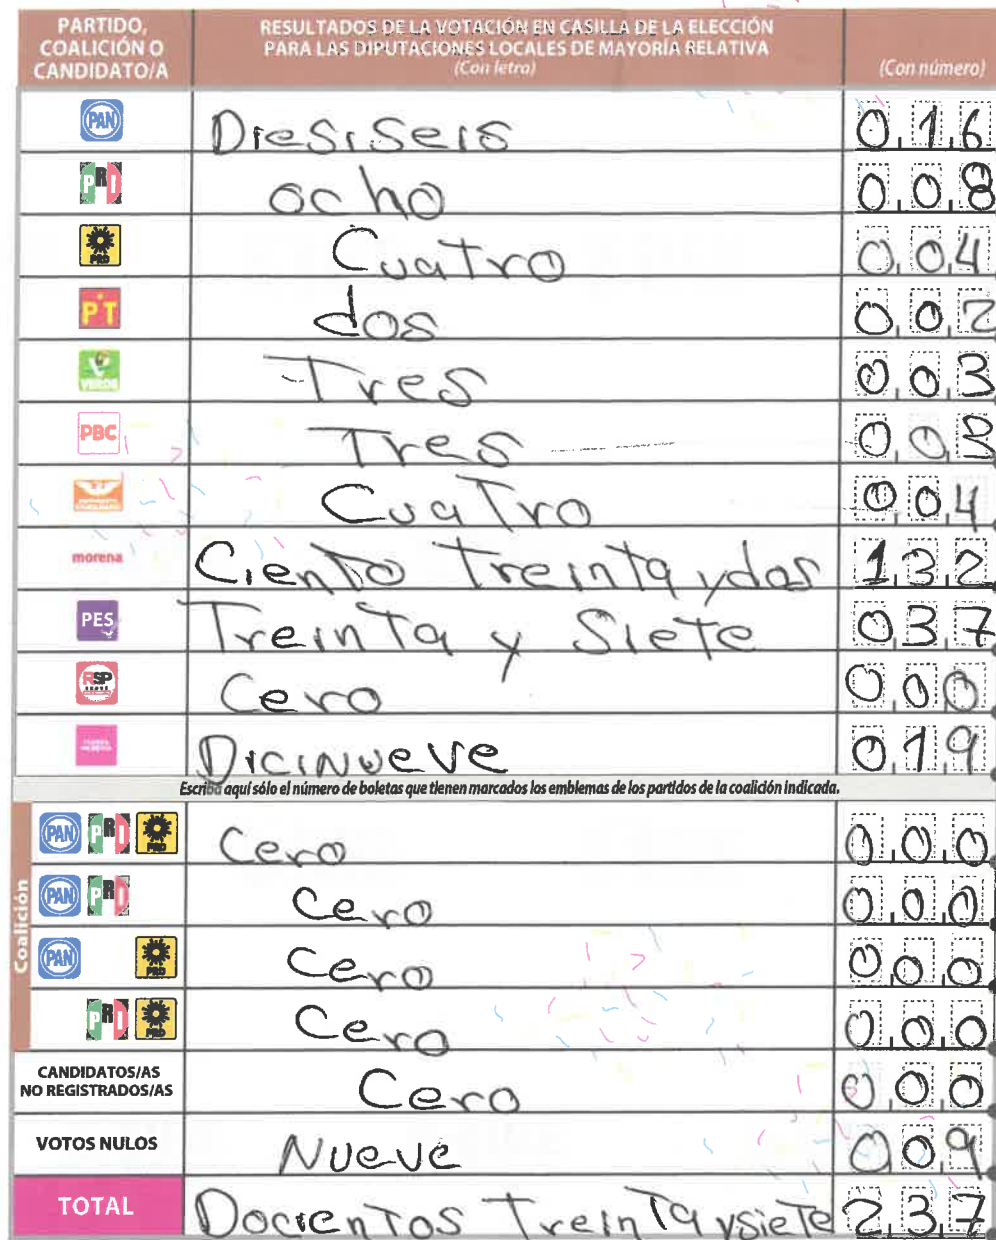 PARTIDO, COALICIÓN O CANDIDATO/A
RESULTADOS DE LA VOTACIÓN EN CASILLA DE LA ELECCIÓN PARA LAS DIPUTACIONES LOCALES DE MAYORÍA RELATIVA
(Con letra)
(Con número)
PAN Diesiseis 016
PRI ocho 008
PRD Cuatro 004
PT dos 002
VERDE Tres 003
PBC Tres 003
Cuatro 004
morena Ciento Treinta y dos 132
PES Treinta y Siete 037
RSP Cero 000
Dicinueve 019
Escriba aquí sólo el número de boletas que tienen marcados los emblemas de los partidos de la coalición indicada.
Coalición
PAN PRI PRD Cero 000
PAN PRI Cero 000
PAN PRD Cero 000
PRI PRD Cero 000
CANDIDATOS/AS NO REGISTRADOS/AS Cero 000
VOTOS NULOS Nueve 009
TOTAL Docientos Treinta y siete 237